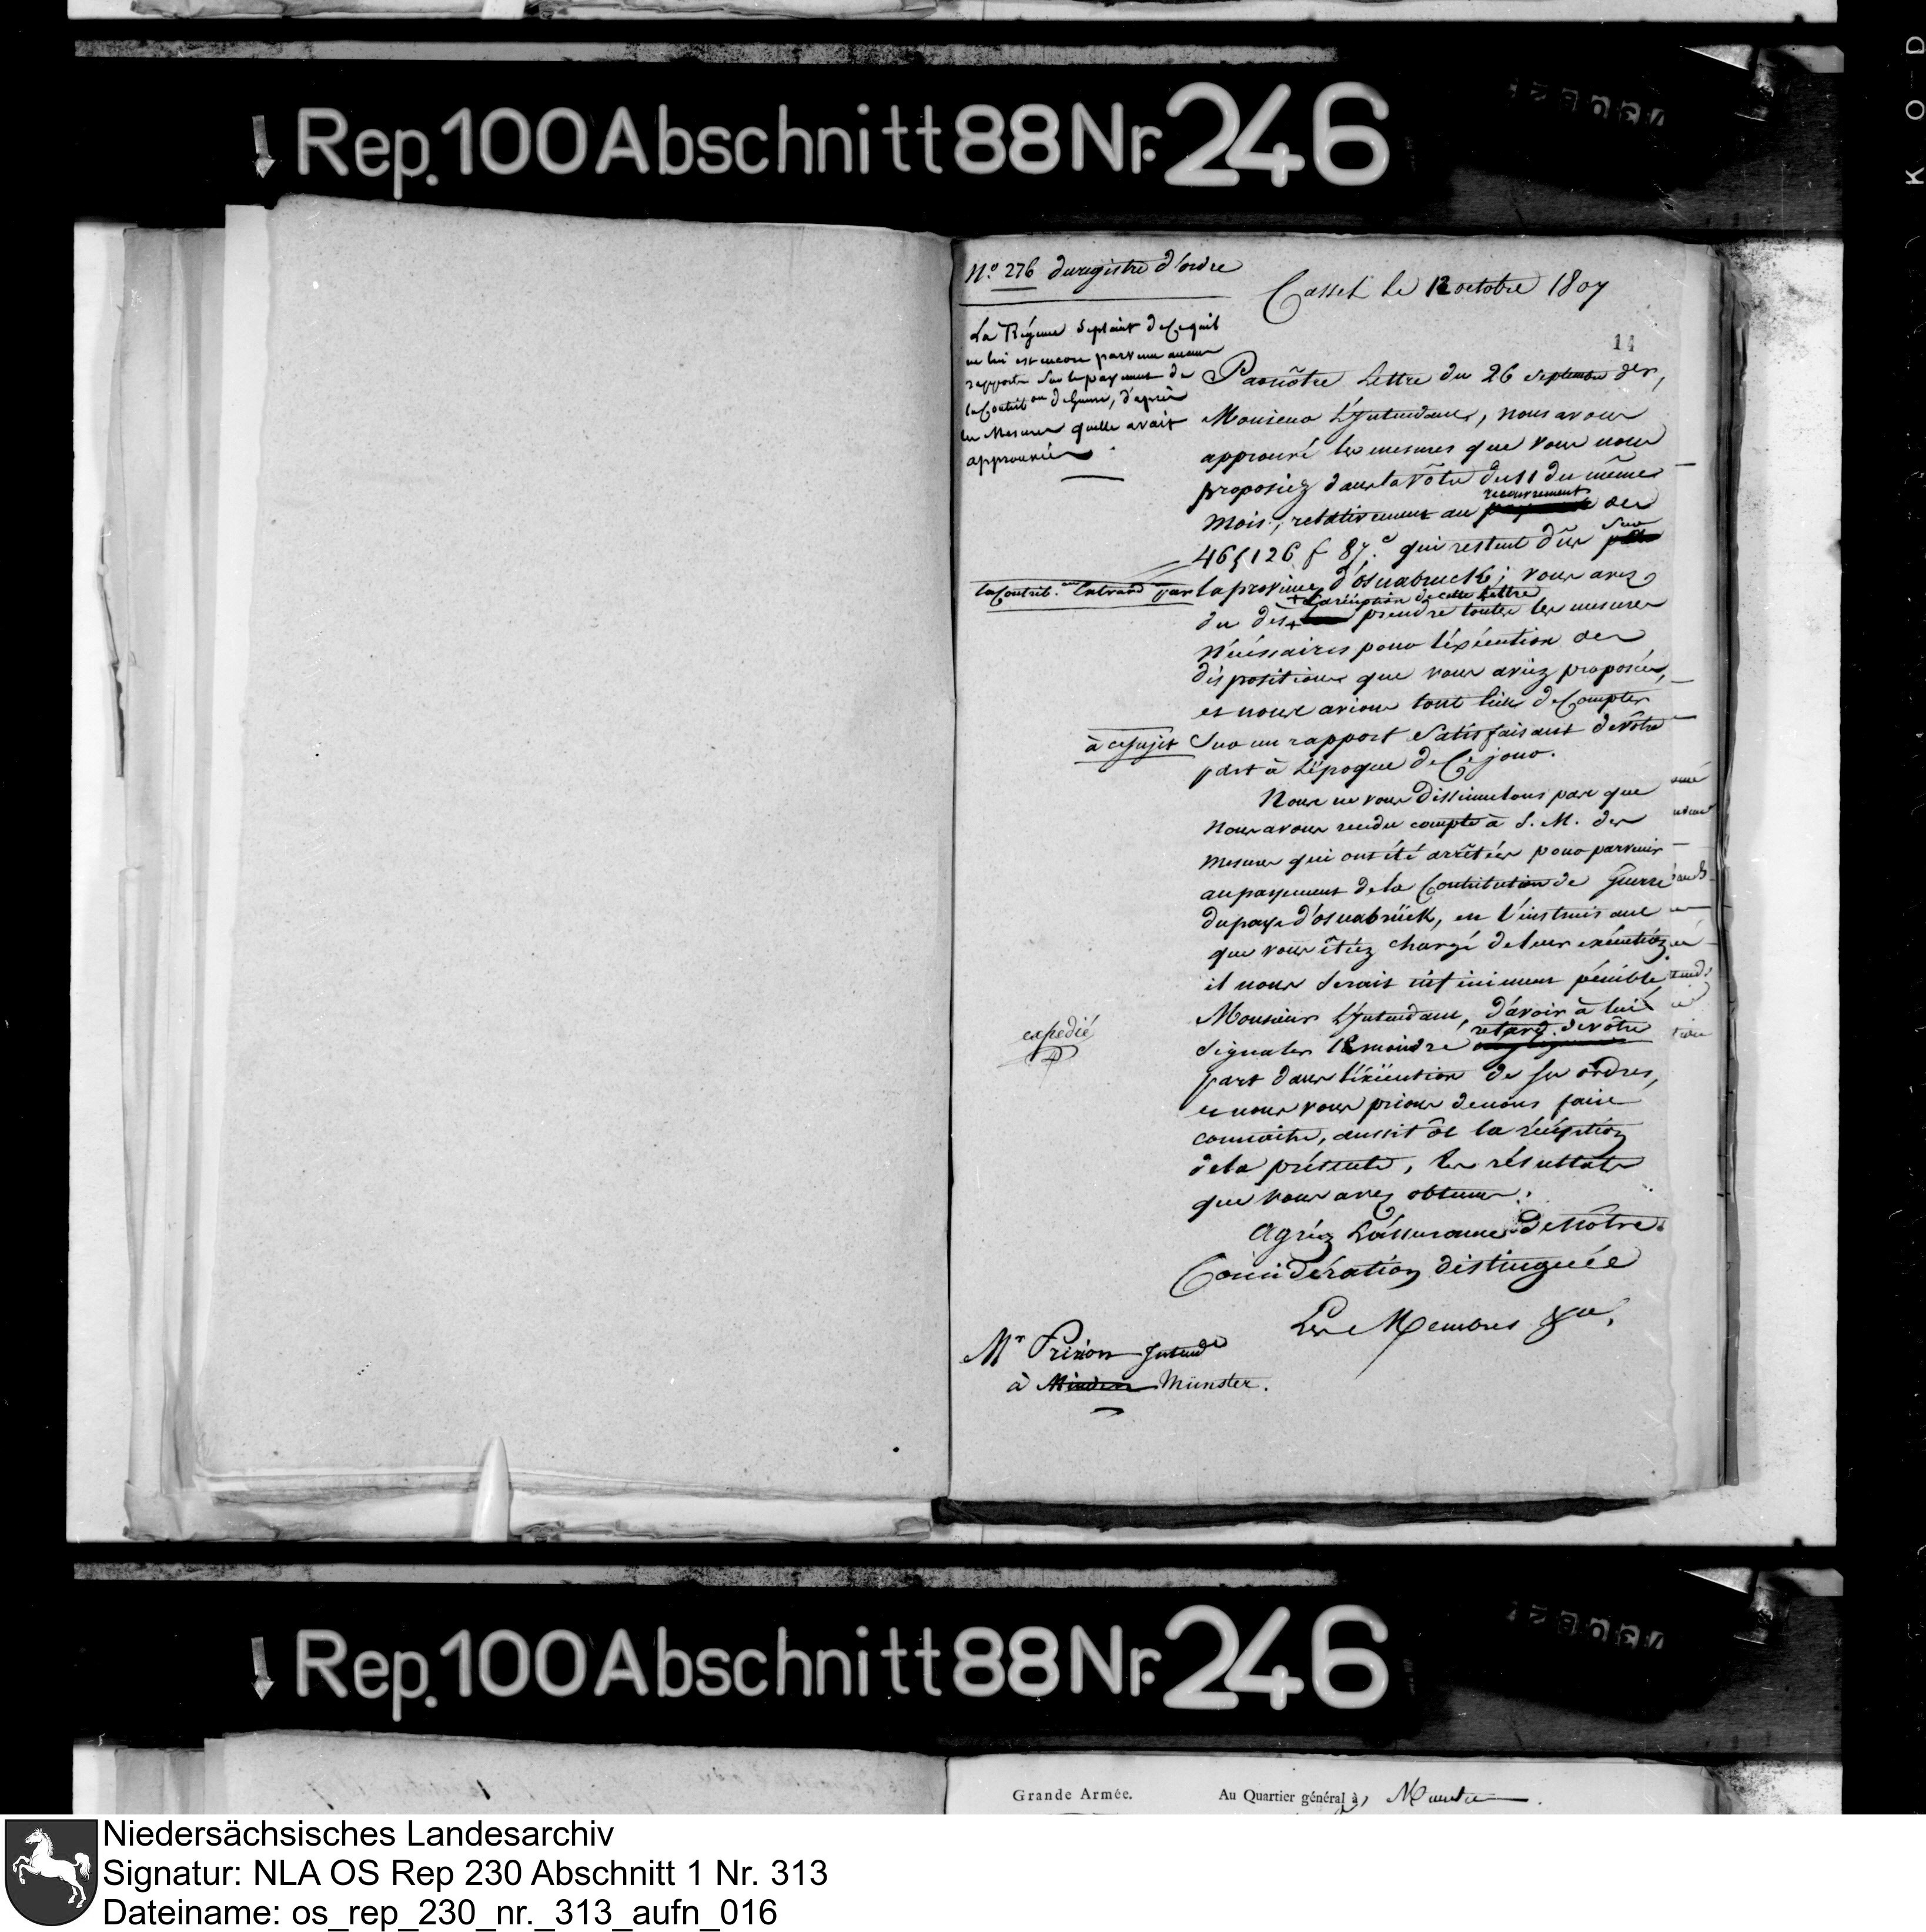 Rep. 100 Abschnitt 88 Nr. 246
N.º 276 du registre d'ordre
Cassel le 12 octobre 1807
14
La Régence se plaint de ce qu'il
ne lui est encore parvenu aucun
rapport sur le payement de
la Contrib.on de Guerre, d'après
les Mesures qu'elle avait
approuvées
Par nôtre Lettre du 26 Septembre der,
Monsieur L'Intendant, nous avons
approuvé les mesures que vous nous
proposiez dans la vôtre du 11 du même
mois, relativement au recouvrement des
465126 f 87.c qui restent dûs sur
la Contrib.on Extraord par la province d'osnabruck; vous avez
du dès + la réception de cette Lettre prendre toutes les mesures
nécéssaires pour l'éxécution des
dispositions que vous aviez proposées,
et nous avions tout lieu de Compter
à ce sujet Sur un rapport Satisfaisant de vôtre
part à L'époque de Ce jour.
Nous ne vous dissimulons pas que
nous avons rendu compte à S. M. des
mesures qui ont été arrêtées pour parvenir
au payement de la Contribution de Guerre
du pays d'osnabrück, en l'instruisant
que vous êtiez chargé de leur exécution
il nous serait infiniment pénible
Monsieur L'Intendant, d'avoir à lui
signaler le moindre retard de vôtre
part dans l'éxécution de ses ordres,
et nous vous prions de nous faire
connaître, aussitôt la réception
de la présente, les résultats
que vous avez obtenus.
expedié
Agréez L'assurance de Nôtre
Considération distinguée
Les Membres &a.
Mr Prizion Intend
à Minden Münster.
Rep. 100 Abschnitt 88 Nr. 246
Grande Armée. Au Quartier général à Munster
Niedersächsisches Landesarchiv
Signatur: NLA OS Rep 230 Abschnitt 1 Nr. 313
Dateiname: os_rep_230_nr._313_aufn_016